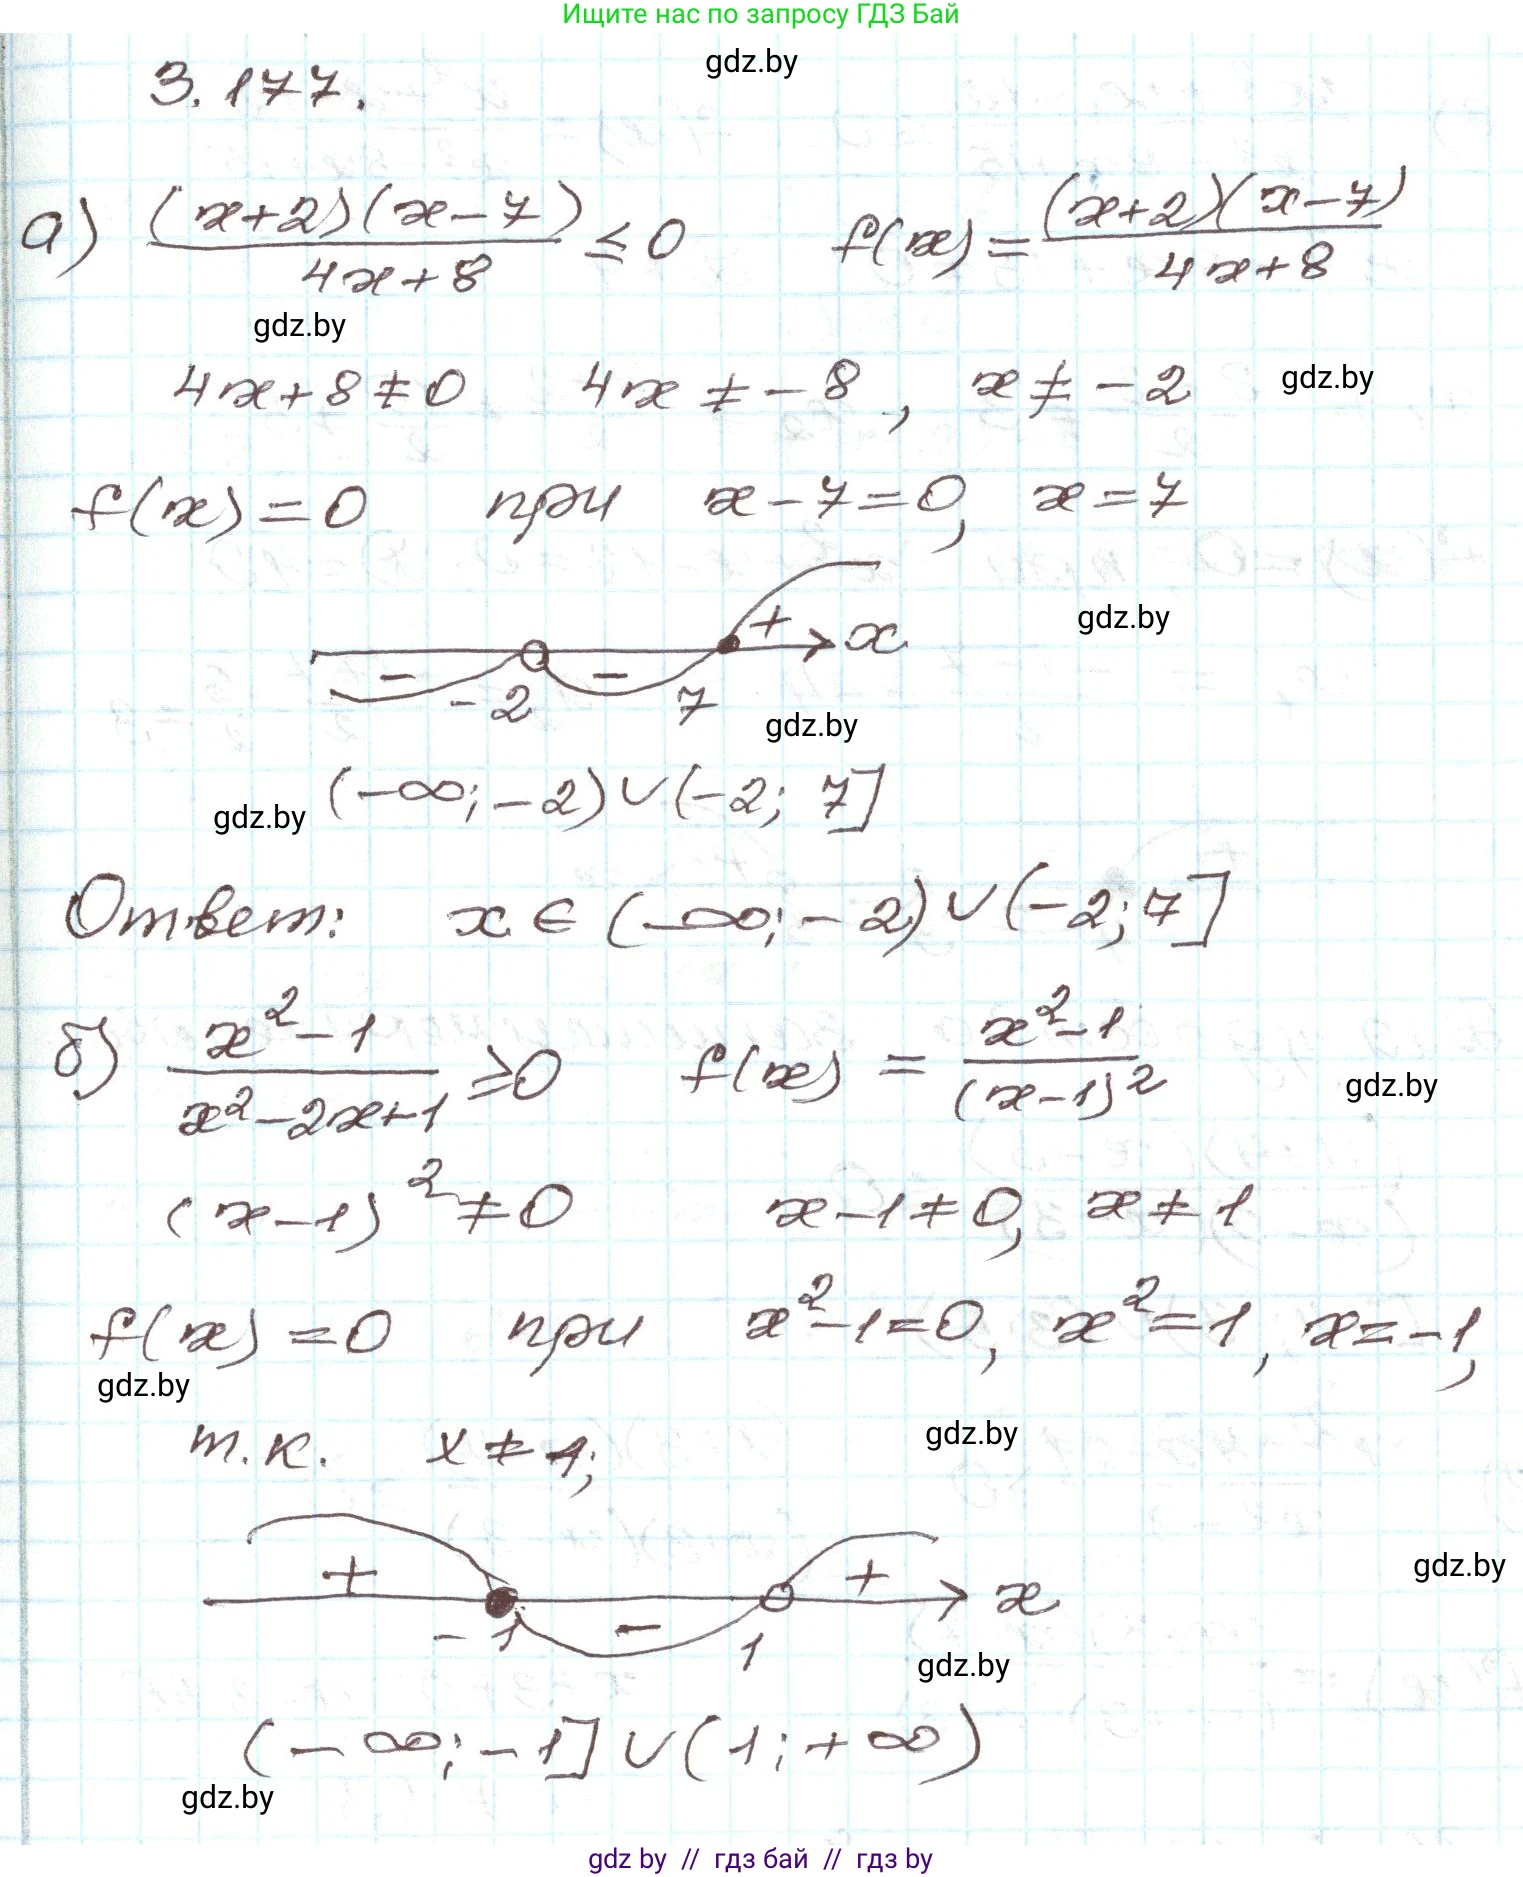 Ищите нас по запросу ГДЗ Бай
gdz.by
3.177.
а) (x+2)(x-7)/4x+8 ≤ 0 f(x) = (x+2)(x-7)/4x+8
gdz.by
4x+8≠0 4x ≠ -8, x ≠ -2 gdz.by
f(x) = 0 при x-7=0, x=7
+ x gdz.by
- -
-2 7 gdz.by
gdz.by (-∞; -2) ∪ (-2; 7]
Ответ: x ∈ (-∞; -2) ∪ (-2; 7]
б) x²-1/x²-2x+1 ≥ 0 f(x) = x²-1/(x-1)² gdz.by
(x-1)² ≠ 0 x-1≠0, x≠1
f(x) = 0 при x²-1=0, x²=1, x=-1,
gdz.by
т.к. x≠1; gdz.by
+ + x gdz.by
-
-1 1 gdz.by
(-∞; -1] ∪ (1; +∞)
gdz.by
gdz by // гдз бай // гдз by